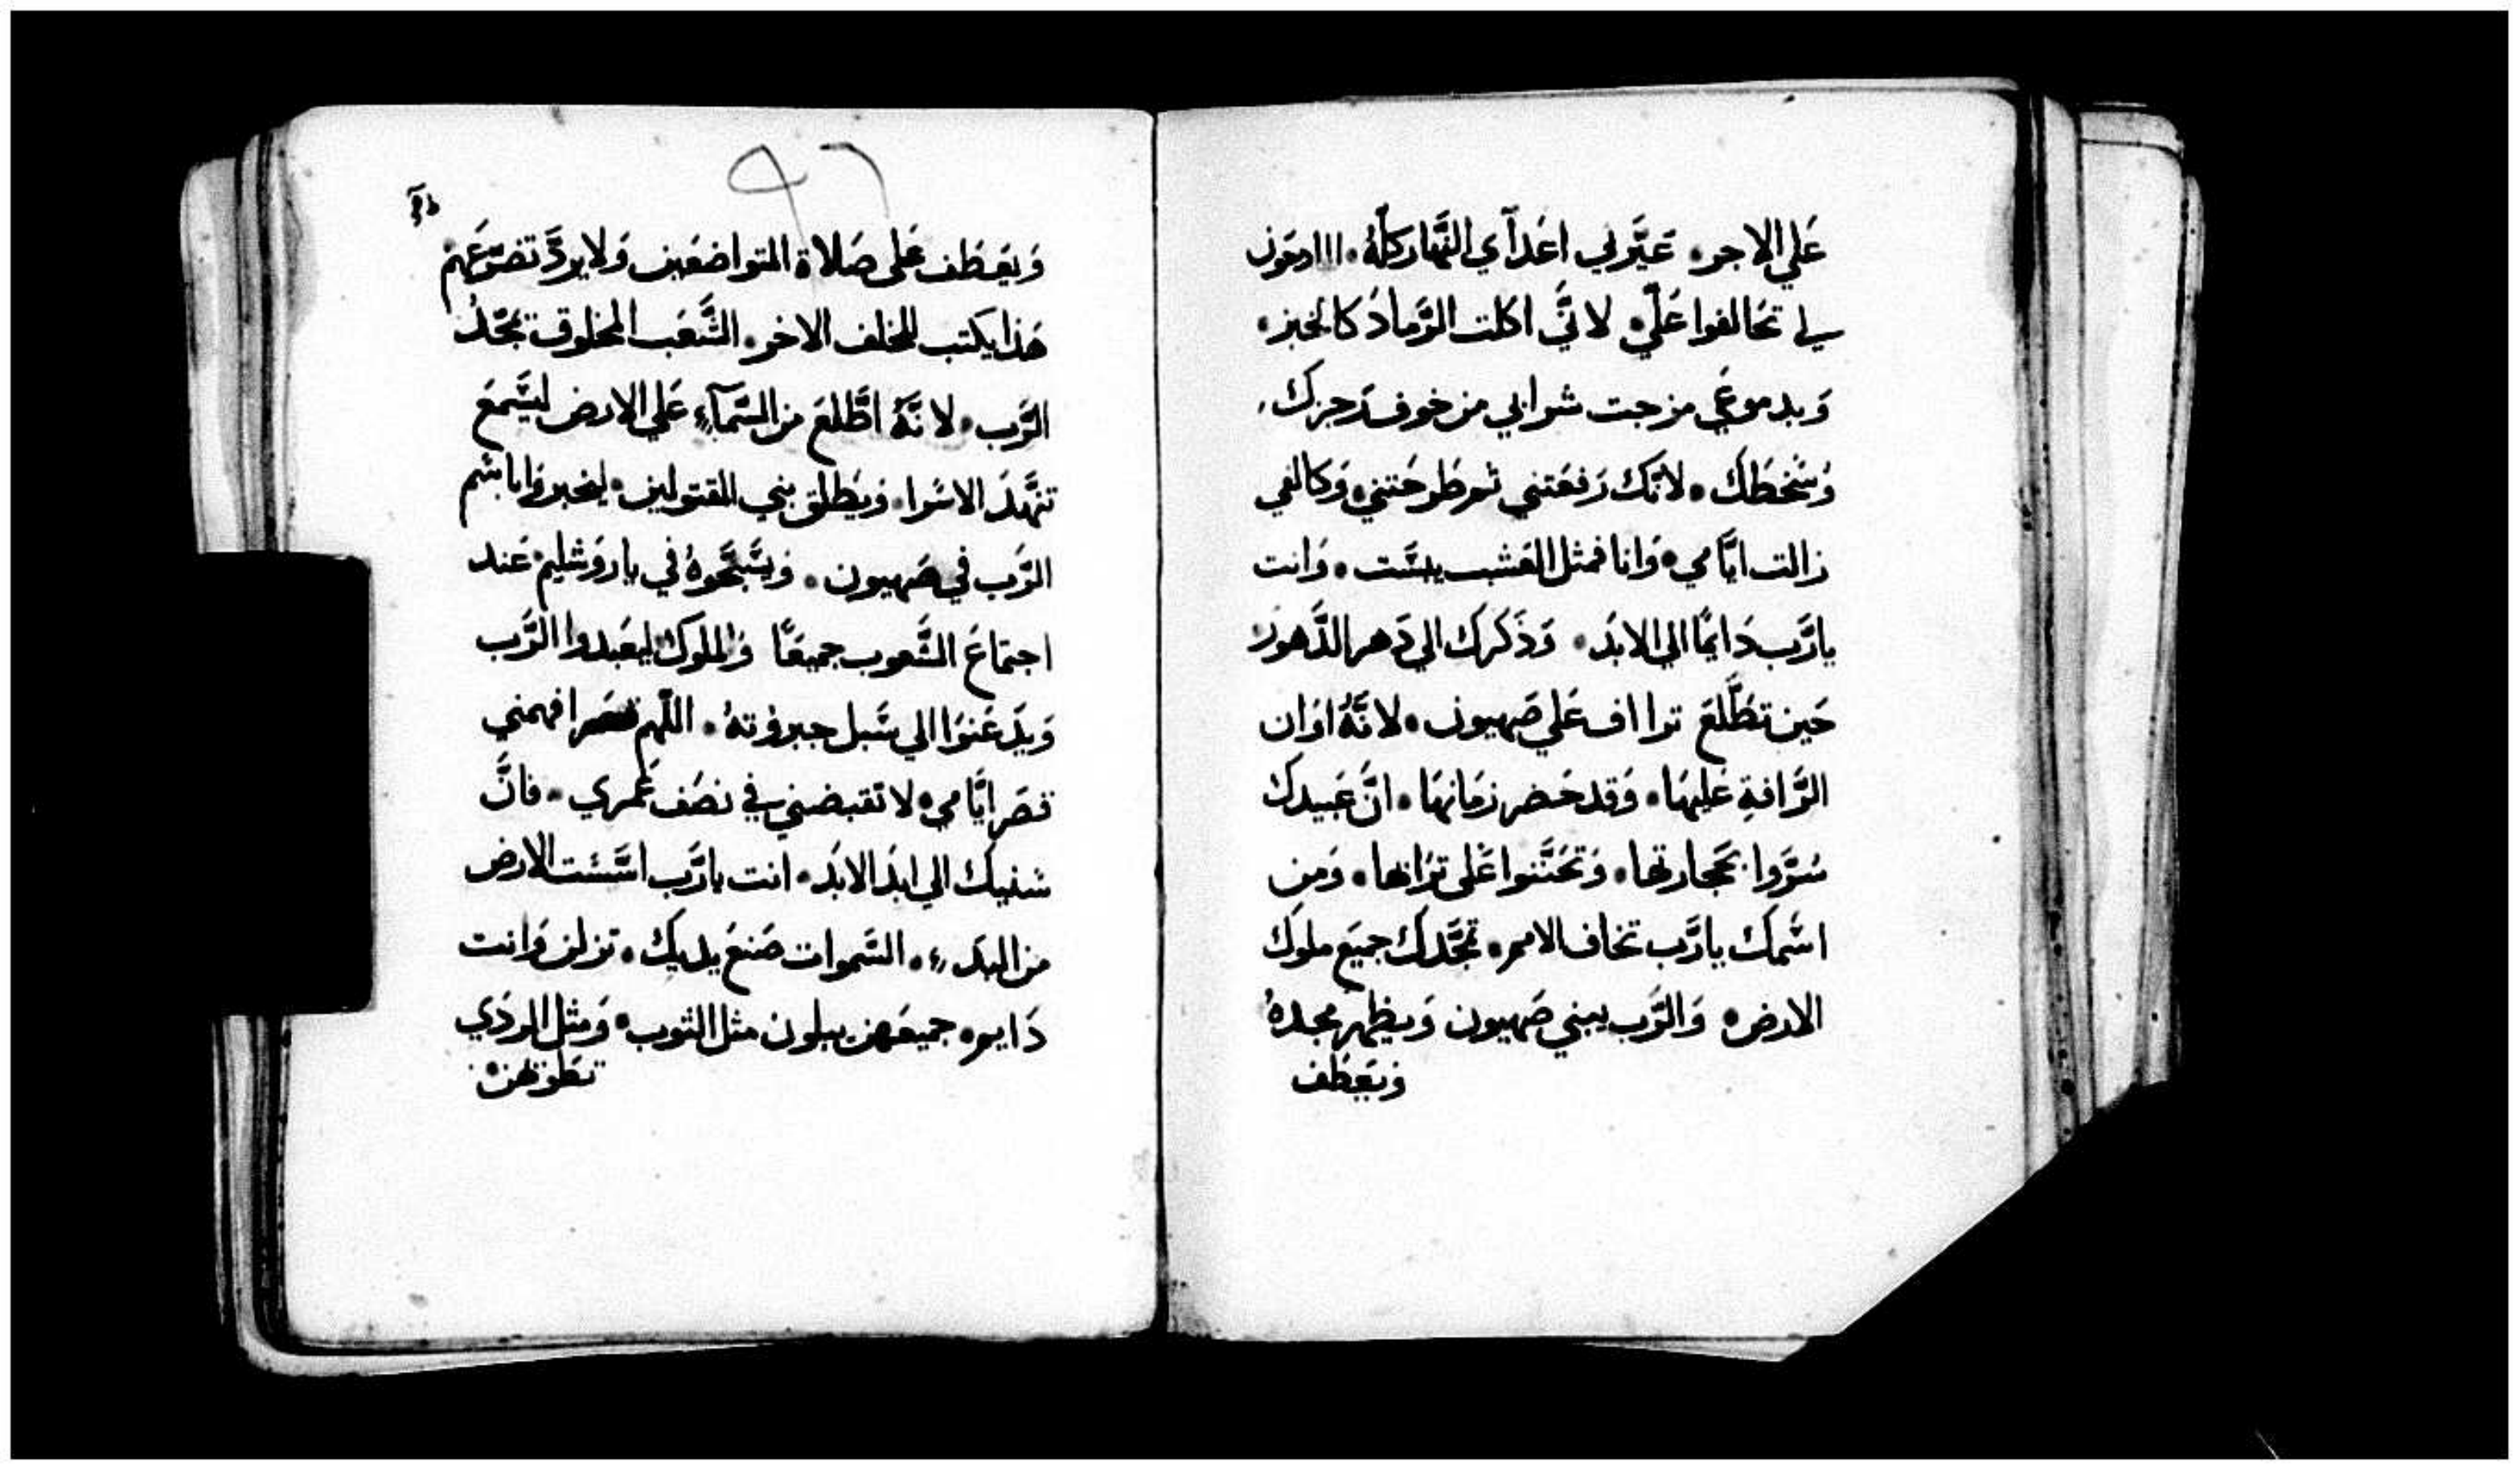 عَلي الاجر• عَيَّرني اعَدآي النَّهار كلَّهُ•
لي تحَالفوا عَليّ• لانيَّ اكلت الرَّمادُ كالخبز•
وَبدموعَي مزجت شرابي من خوف رَجزك•
وَسَخطَك• لانّك رَفعَتني ثم طَرحَتني• وَكالفي
زالت ايَّامي• وَانا فمثل العَشب يبسَّت• وَانت
يارَّب دَايمًا الي الابَد• وَذَكرَك الي دَهر الدَّهور
حَين تطَّلعَ ترااف عَلي صَهيون• لانَّهُ اوَان
الرَّافةِ عَليهَا• وَقد حَضر زمَانهَا• انَّ عَبيدك
سُرَّوا بحَجارتها• وَتحَنَّنوا عَلى ترَابها• وَمن
اسَّمك يارَّب تخاف الامم• تمجَّدك جميَع ملوك
الارض• وَالرَّب يبني صَهيون وَيظهر مجدهُ
وَيعَطَف
٩٦
وَيعَطَف عَلى صَلاة المتواضعَين وَلا يردَّ تضرّعَهم
هَذا يكتب للخلف الاخر• الشَّعَب المخلوق تمجَّدُ
الرَّب• لانَّهُ اطَّلعَ من السَّمآءِ عَلي الارض ليسَّمعَ
تنهَّدَ الاسَرا• وَيطَلق بني المقتولين• ليخبروَا باسَّم
الرَّب في صَهيون• وَيسَّبَّحَوهُ في ياروَشليم• عَند
اجتماعَ الشَّعوب جميعًَا وَالملوَك ليعَبدوا الرَّب
وَيدَعَنوَا الي سَّبل جبروَتهُ• اللّهم افهمني
قصَر ايَّامي• لا تقبضني في نصَف عَمري• فانَّ
سَنيك الي ابدَ الابَد• انت يارَّب اسَّسَت الارض
من البدَءِ• السَّموات صَنعَ يديك• تزلن وَانت
دَايم• جميعَهن يبلون مثل الثوب• وَمثل الردَي
تطَويهن•